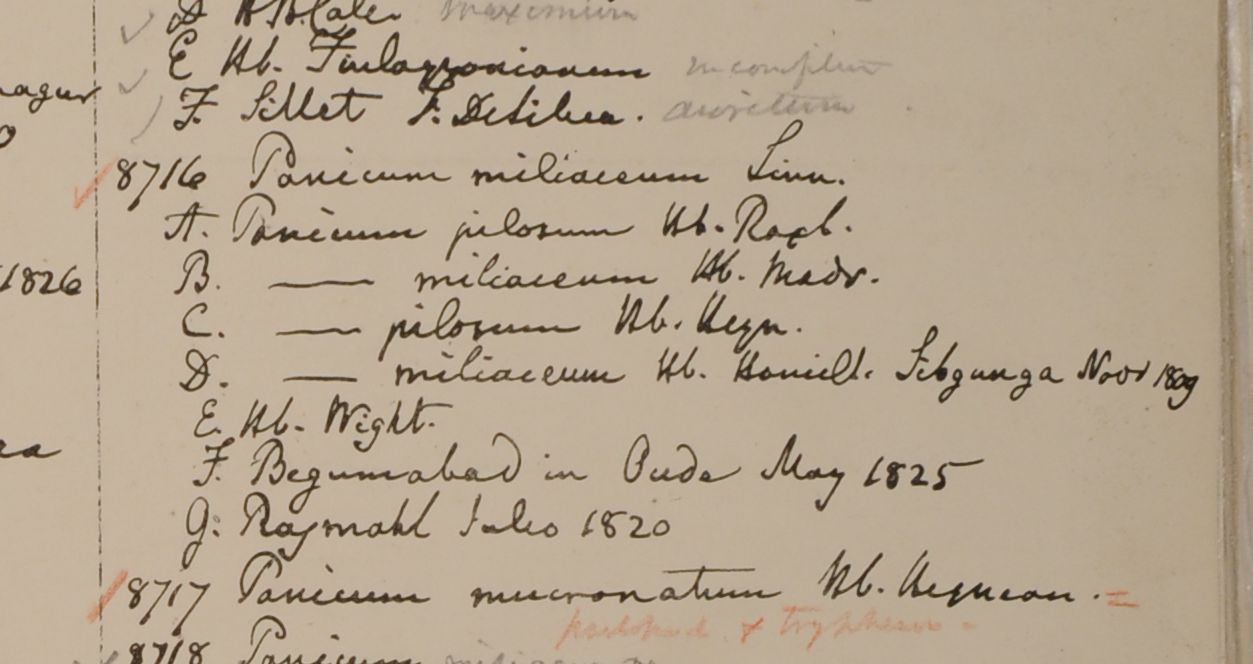 E Hb. Finlaysonianum
F. Sillet F. De Silva.
8716 Panicum miliaceum Linn.
A. Panicum pilosum Hb. Roxb.
1826
B. —— miliaceum Hb. Madr.
C. —— pilosum Hb. Heyn.
D. —— miliaceum Hb. Hamilt. Sibgunga Novr 1809
E. Hb. Wight.
F. Begumabad in Oude May 1825
G. Rajmahl Julio 1820
8717 Panicum mucronatum Hb. Heynean. =
8718 Panicum